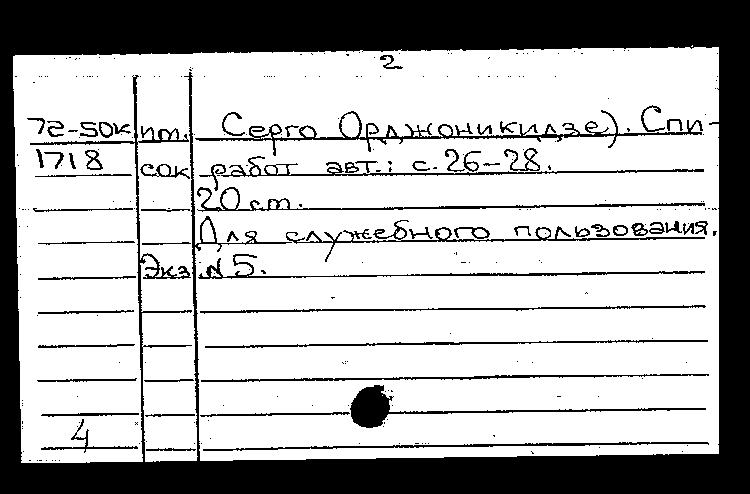 2
72-50к им. Серго Орджоникидзе). Спи-
1718 сок работ авт.: с. 26-28.
20 ст.
Для служебного пользования.
Экз. № 5.
4